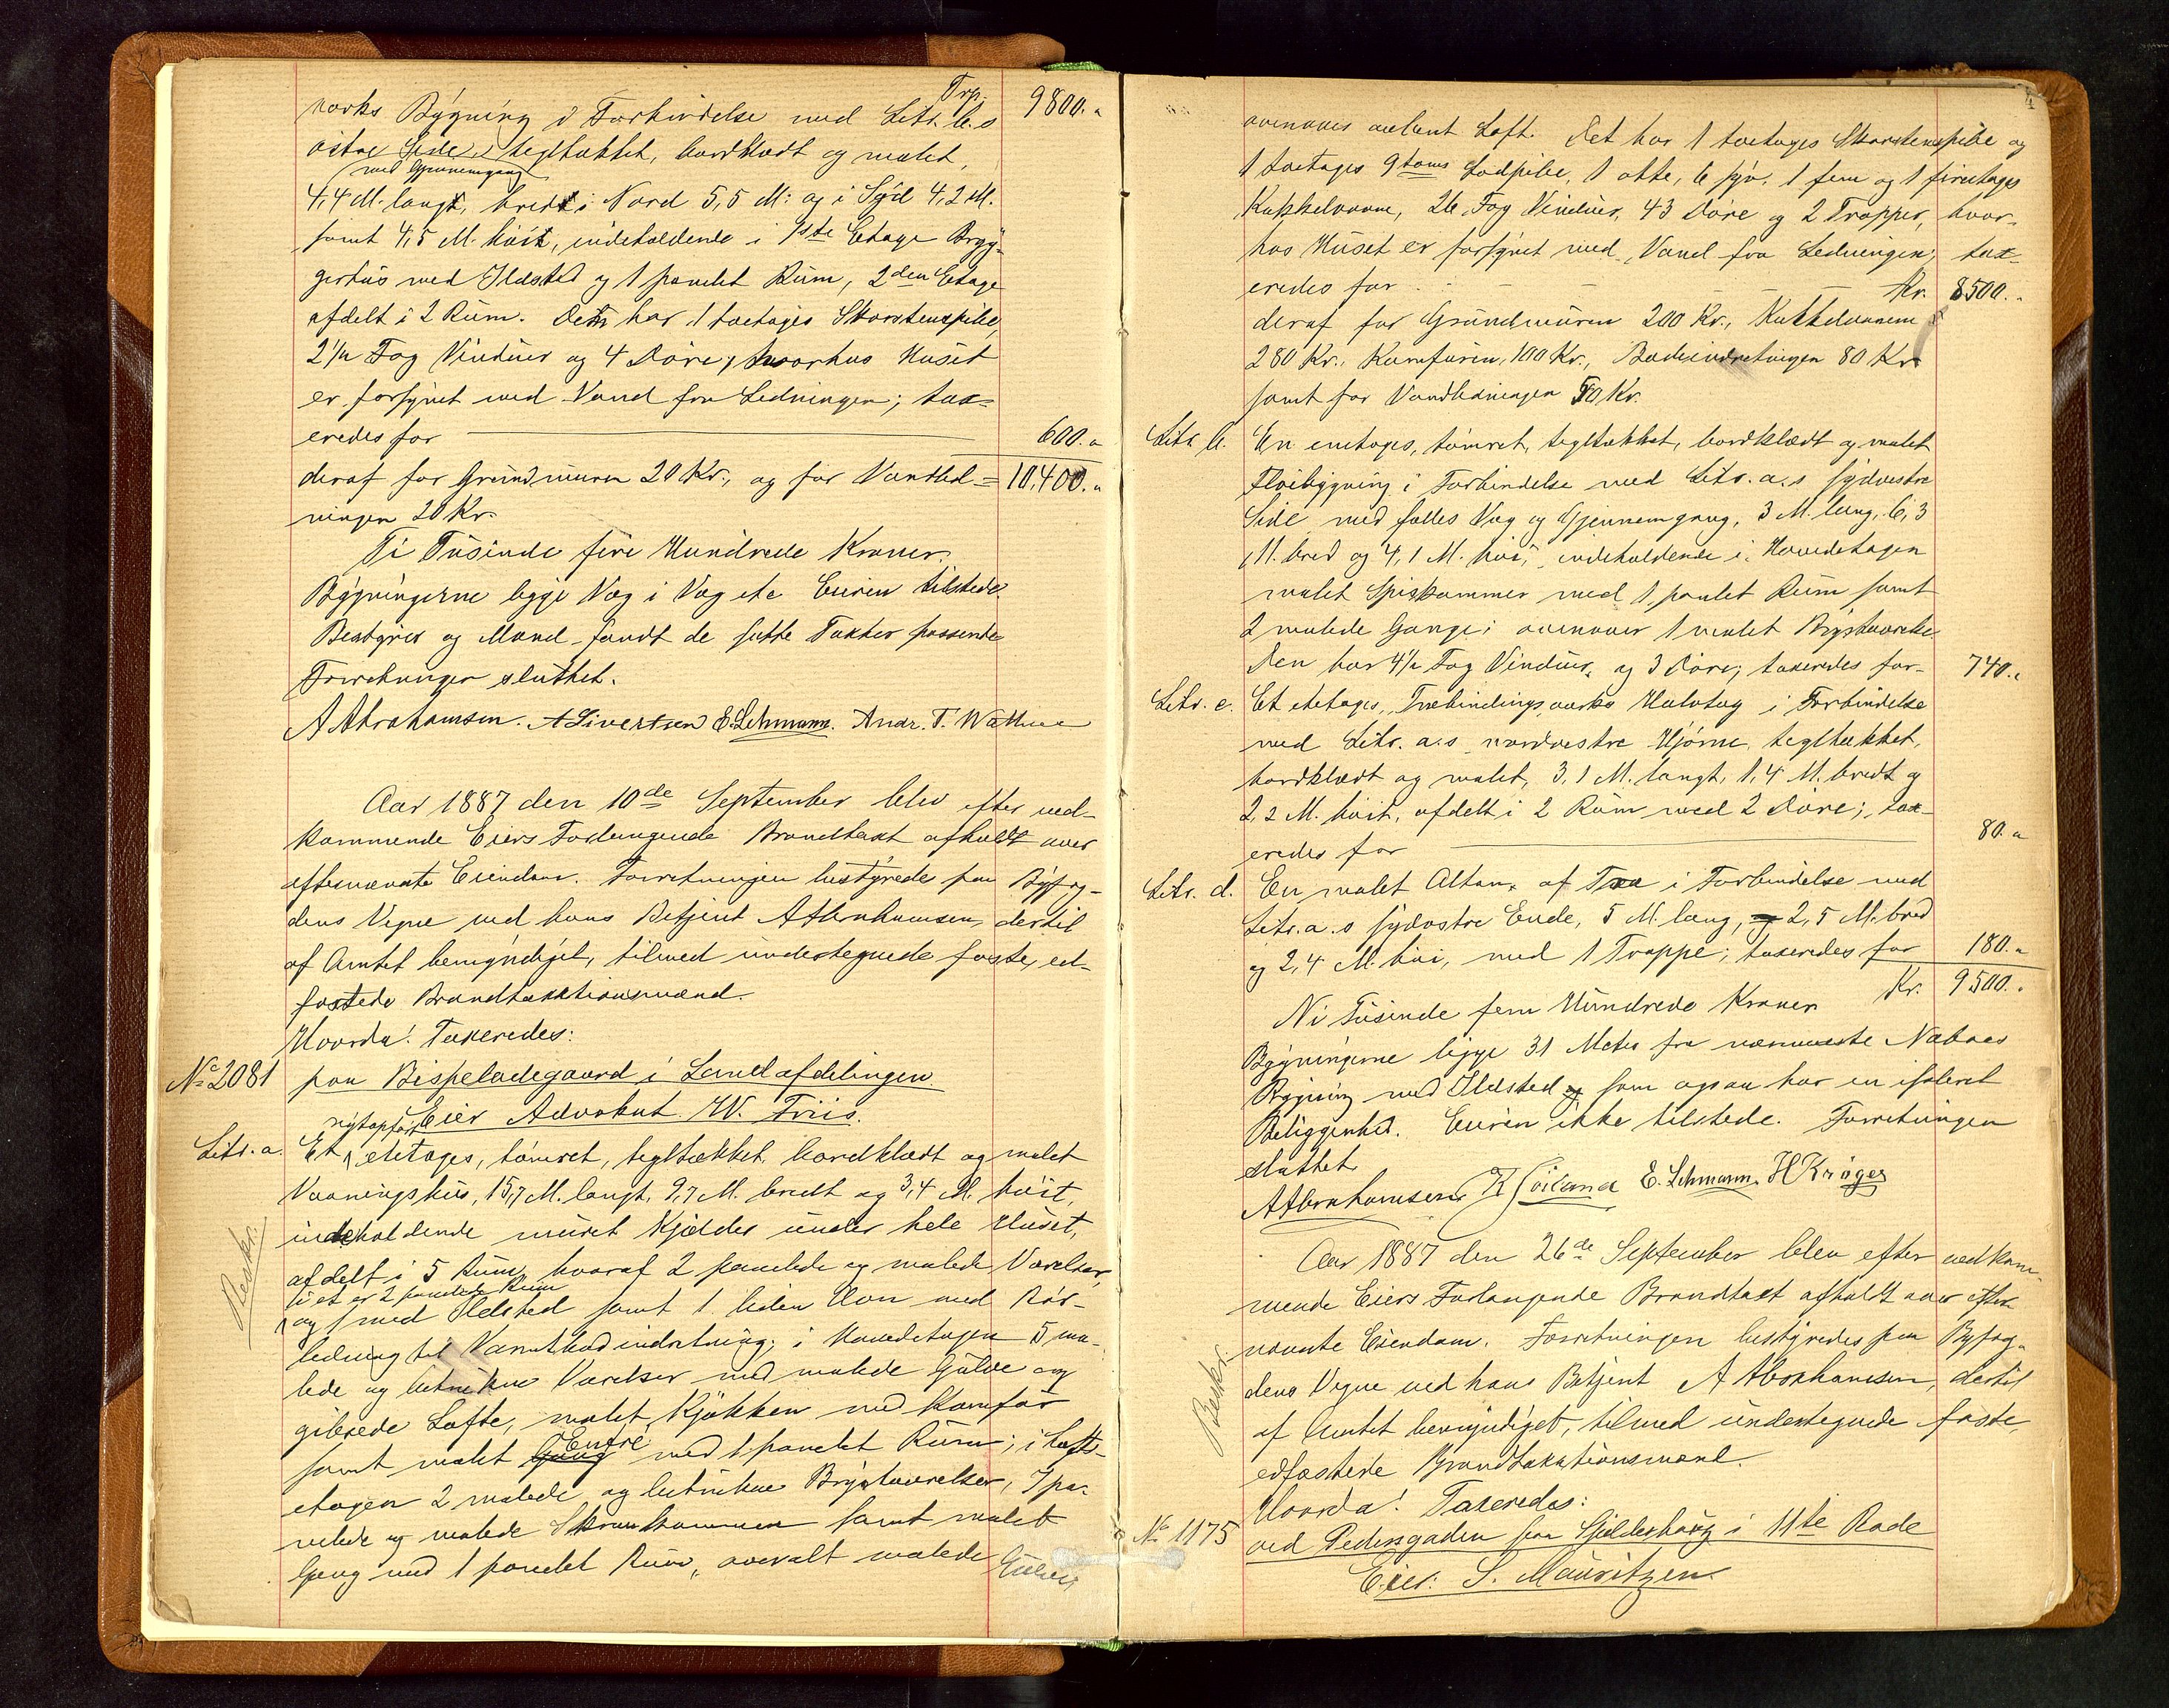 Trp. 9800.„
værks Bygning i Forbindelse med Litr. b.s
østre Side, tegltækket, bordklædt og malet,
med Gjennemgang
4,4 M. langt, bredt i Nord 5,5 M: og i Syd 4,2 M.
samt 4,5 M. høit, indeholdende i 1ste Etage Bryg-
gerhus med Ildsted og 1 panelet Rum, 2den Etage
afdelt i 2 Rum. Det har 1 toetages Skorstenspibe,
2½ Fag Vinduer og 4 Døre; hvorhos Huset
er forsynet med Vand fra Ledningen; tax-
eredes for 600.„
deraf for Grundmuren 20 Kr., og for Vandled- 10,400.„
ningen 20 Kr.
Ti Tusinde fire Hundrede Kroner.
Bygningerne ligge Væg i Væg etc Eieren tilstede.
Bestyrer og Mænd fandt de satte Takter passende
Forretningen sluttet.
A Abrahamsen. A Sivertsen E. Lehmann. Andr. T. Wathne
Aar 1887 den 10de September blev efter ved-
kommende Eiers Forlangende Brandtaxt afholdt over
efternævnte Eiendom. Forretningen bestyredes paa Byfog-
dens Vegne ved hans Betjent A Abrahamsen, dertil
af Amtet bemyndiget, tilmed undertegnede faste, ed-
fæstede Brandtaxtionsmænd.
Hvorda! Taxeredes:
No 2081 paa Bispeladegaard i Landafdelingen
Eier Advokat W. Friis.
nyopført
Litr. a. Et etetages, tømret, tegltækket, bordklædt og malet
Vaaningshus, 15,7 M. langt, 9,7 M. bredt og 3,4 M. høit,
indeholdende muret Kjelder under hele Huset,
afdelt i 5 Rum, hvoraf 2 panelede og malede Værelser,
i et er 2 panelede Rum
og 1 med Ildsted samt 1 liden Ovn med Rør-
ledning til Varmtbadindretning; i Hovedetagen 5 ma-
lede og betrukne Værelser med malede Gulve og
gibsede Lofte, malet Kjøkken med Komfur
Entré
samt malet Gang med 1 panelet Rum; i Loft-
etagen 2 malede og betrukne Brystværelser, 7 pa-
nelede og malede Skraakammere samt malet
Gang med 1 panelet Rum, overalt malede Gulve,
Beskr.
ovenover aabent Loft. Det har 1 toetages Skorstenspibe og
1 toetages 9toms Lodpibe, 1 otte, 6 syv, 1 fem og 1 fireetages
Kakkelovne, 26 Fag Vinduer, 43 Døre og 2 Trapper, hvor-
hos Huset er forsynet med Vand fra Ledningen; tax-
eredes for Kr. 8500.„
deraf for Grundmuren 200 Kr., Kakkelovnene
280 Kr., Komfuren 100 Kr., Badeindretningen 80 Kr.
samt for Vandledningen 50 Kr.
Litr. b. En enetages, tømret, tegltækket, bordklædt og malet
Fløibygning i Forbindelse med Litr. a.s sydvestre
Side med fælles Væg og Gjennemgang, 3 M. lang, 6,3
M. bred og 4,1 M. høi, indeholdende i Hovedetagen
malet Spiskammer med 1 panlet Rum samt
2 malede Gange; ovenover 1 malet Brystværelse.
Den har 4½ Fag Vinduer, og 3 Døre; taxeredes for 740.„
Litr. c. Et etetages, Træbindingsværks Halvtag i Forbindelse
med Litr. a.s nordvestre Hjørne, tegltækket,
bordklædt og malet, 3,1 M. langt, 1,4 M. bredt og
2,2 M. høit, afdelt i 2 Rum med 2 Døre; tax-
eredes for 80.„
Litr. d. En malet Altan, af Træ i Forbindelse med
Litr. a.s sydøstre Ende, 5 M. lang, og 2,5 M. bred
og 2,4 M. høi, med 1 Trappe; taxeredes for 180.„
Kr. 9500.„
Ni Tusinde fem Hundrede Kroner
Bygningerne ligge 31 Meter fra nærmeste Naboes
Bygning med Ildsted og som ogsaa har en isoleret
Beliggenhed. Eieren ikke tilstede. Forretningen
sluttet.
A Abrahamsen K Høiland E. Lehmann. H Krøger
Aar 1887 den 26de September blev efter vedkom-
mende Eiers Forlangende Brandtaxt afholdt over efter-
nævnte Eiendom. Forretningen bestyredes paa Byfog-
dens Vegne ved hans Betjent A Abrahamsen, dertil
af Amtet bemyndiget, tilmed undertegnede faste,
edfæstede Brandtaxationsmænd.
Hvorda! Taxeredes:
No 1175 ved Pedersgaden paa Spilderhaug i 11te Rode
Eier: S. Mauritzen.
Beskr.